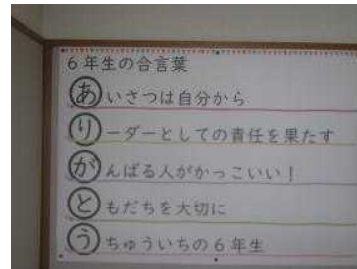 6年生の合言葉
あいさつは自分から
リーダーとしての責任を果たす
がんばる人がかっこいい！
ともだちを大切に
うちゅういちの6年生